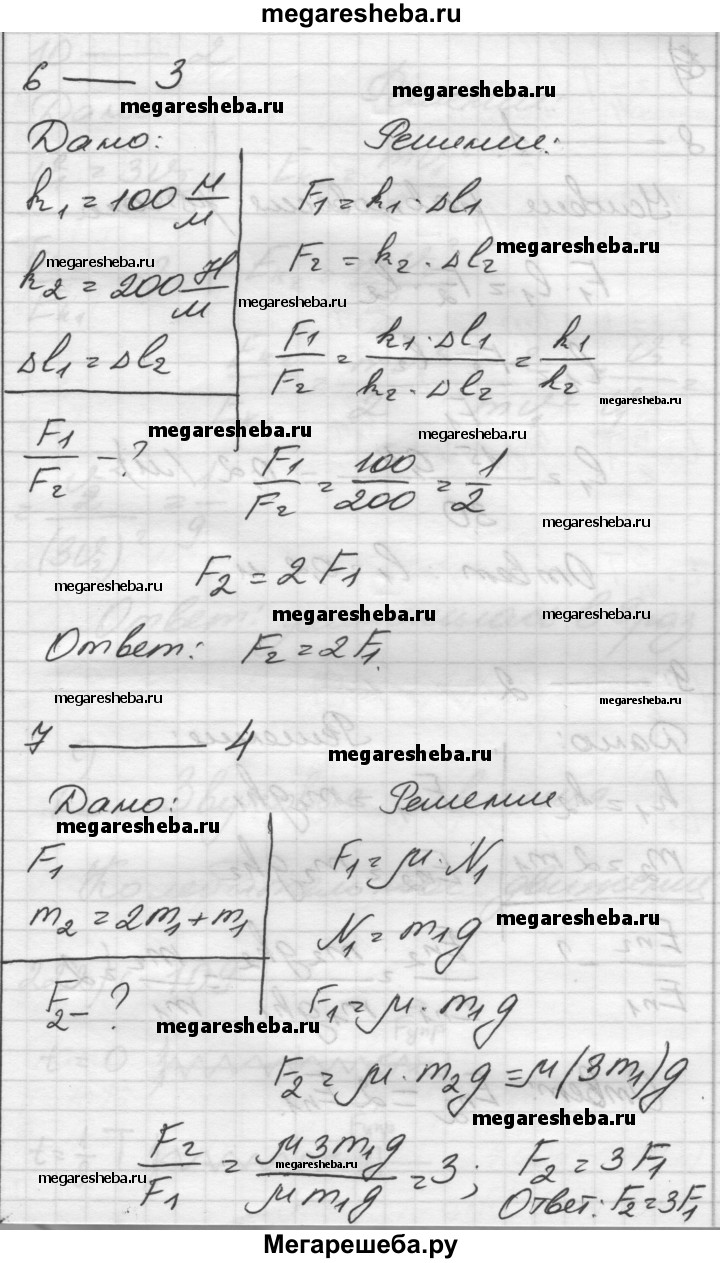 megaresheba.ru
6 — 3
megaresheba.ru
megaresheba.ru
Дано:
Решение:
k₁ = 100 м/м
F₁ = k₁ · Δl₁
megaresheba.ru
F₂ = k₂ · Δl₂
megaresheba.ru
k₂ = 200 Н/м
megaresheba.ru
Δl₁ = Δl₂
F₁/F₂ = k₁ · Δl₁ / k₂ · Δl₂ = k₁/k₂
megaresheba.ru
megaresheba.ru
megaresheba.ru
F₁/F₂ - ?
F₁/F₂ = 100/200 = 1/2
megaresheba.ru
F₂ = 2 F₁
megaresheba.ru
megaresheba.ru
megaresheba.ru
Ответ: F₂ = 2F₁.
megaresheba.ru
megaresheba.ru
7 — 4
megaresheba.ru
Дано:
Решение
megaresheba.ru
F₁
F₁ = μ · N₁
m₂ = 2m₁ + m₁
megaresheba.ru
N₁ = m₁g
F₂ - ?
F₁ = μ · m₁g
megaresheba.ru
F₂ = μ · m₂g = μ(3m₁)g
megaresheba.ru
F₂/F₁ = μ3m₁g / μm₁g = 3; F₂ = 3F₁
megaresheba.ru
megaresheba.ru
Ответ: F₂ = 3F₁
Мегарешеба.ру